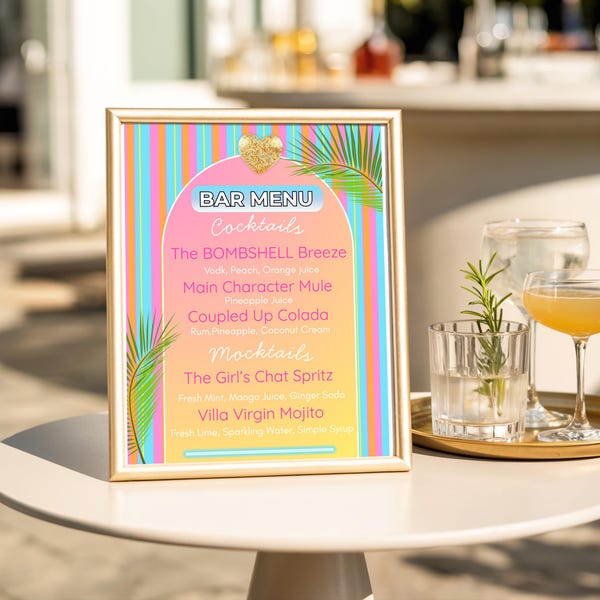 BAR MENU
Cocktails
The BOMBSHELL Breeze
Vodk, Peach, Orange juice
Main Character Mule
Pineapple Juice
Coupled Up Colada
Rum,Pineapple, Coconut Cream
Mocktails
The Girl's Chat Spritz
Fresh Mint, Mango Juice, Ginger Soda
Villa Virgin Mojito
Fresh Lime, Sparkling Water, Simple Syrup